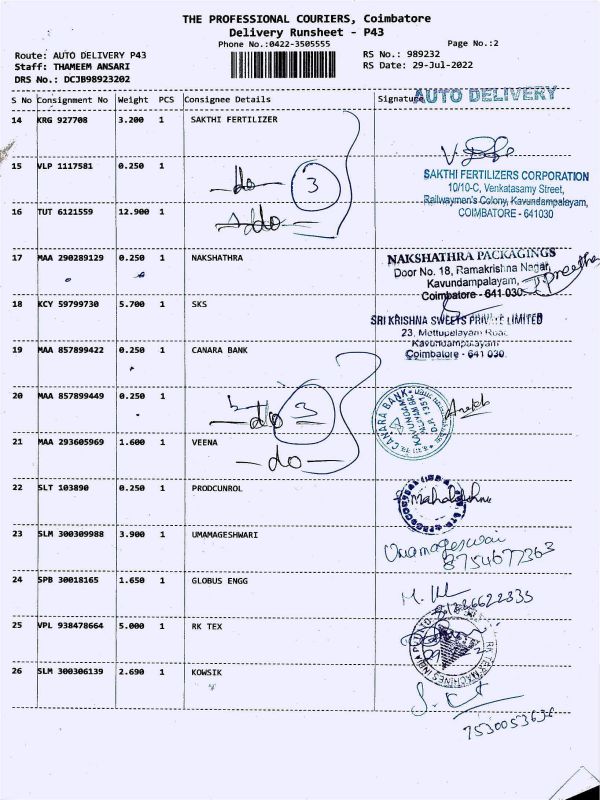 THE PROFESSIONAL COURIERS, Coimbatore
Delivery Runsheet - P43
Phone No.:0422-3505555
Page No.:2
Route: AUTO DELIVERY P43
RS No.: 989232
Staff: THAMEEM ANSARI
RS Date: 29-Jul-2022
DRS No.: DCJB98923202
S No Consignment No Weight PCS Consignee Details Signature
AUTO DELIVERY
14 KRG 927708 3.200 1 SAKTHI FERTILIZER
15 VLP 1117581 0.250 1
-do- 3
SAKTHI FERTILIZERS CORPORATION
10/10-C, Venkatasamy Street,
Railwaymen's Colony, Kavundampalayam,
COIMBATORE - 641030
16 TUT 6121559 12.900 1
17 MAA 290289129 0.250 1 NAKSHATHRA
NAKSHATHRA PACKAGINGS
Door No. 18, Ramakrishna Nagar,
Kavundampalayam,
Coimbatore - 641 030.
Preetha
18 KCY 59799730 5.700 1 SKS
SRI KRISHNA SWEETS PRIVATE LIMITED
23, Mettupalayam Road,
Kavundampalayam
Coimbatore - 641 030.
19 MAA 857899422 0.250 1 CANARA BANK
20 MAA 857899449 0.250 1
-do- 3
CANARA BANK
21 MAA 293605969 1.600 1 VEENA
-do-
22 SLT 103890 0.250 1 PRODCUNROL
23 SLM 300309988 3.900 1 UMAMAGESHWARI
Umamageswai
8754677363
24 SPB 30018165 1.650 1 GLOBUS ENGG
25 VPL 938478664 5.000 1 RK TEX
26 SLM 300306139 2.690 1 KOWSIK
7530053636